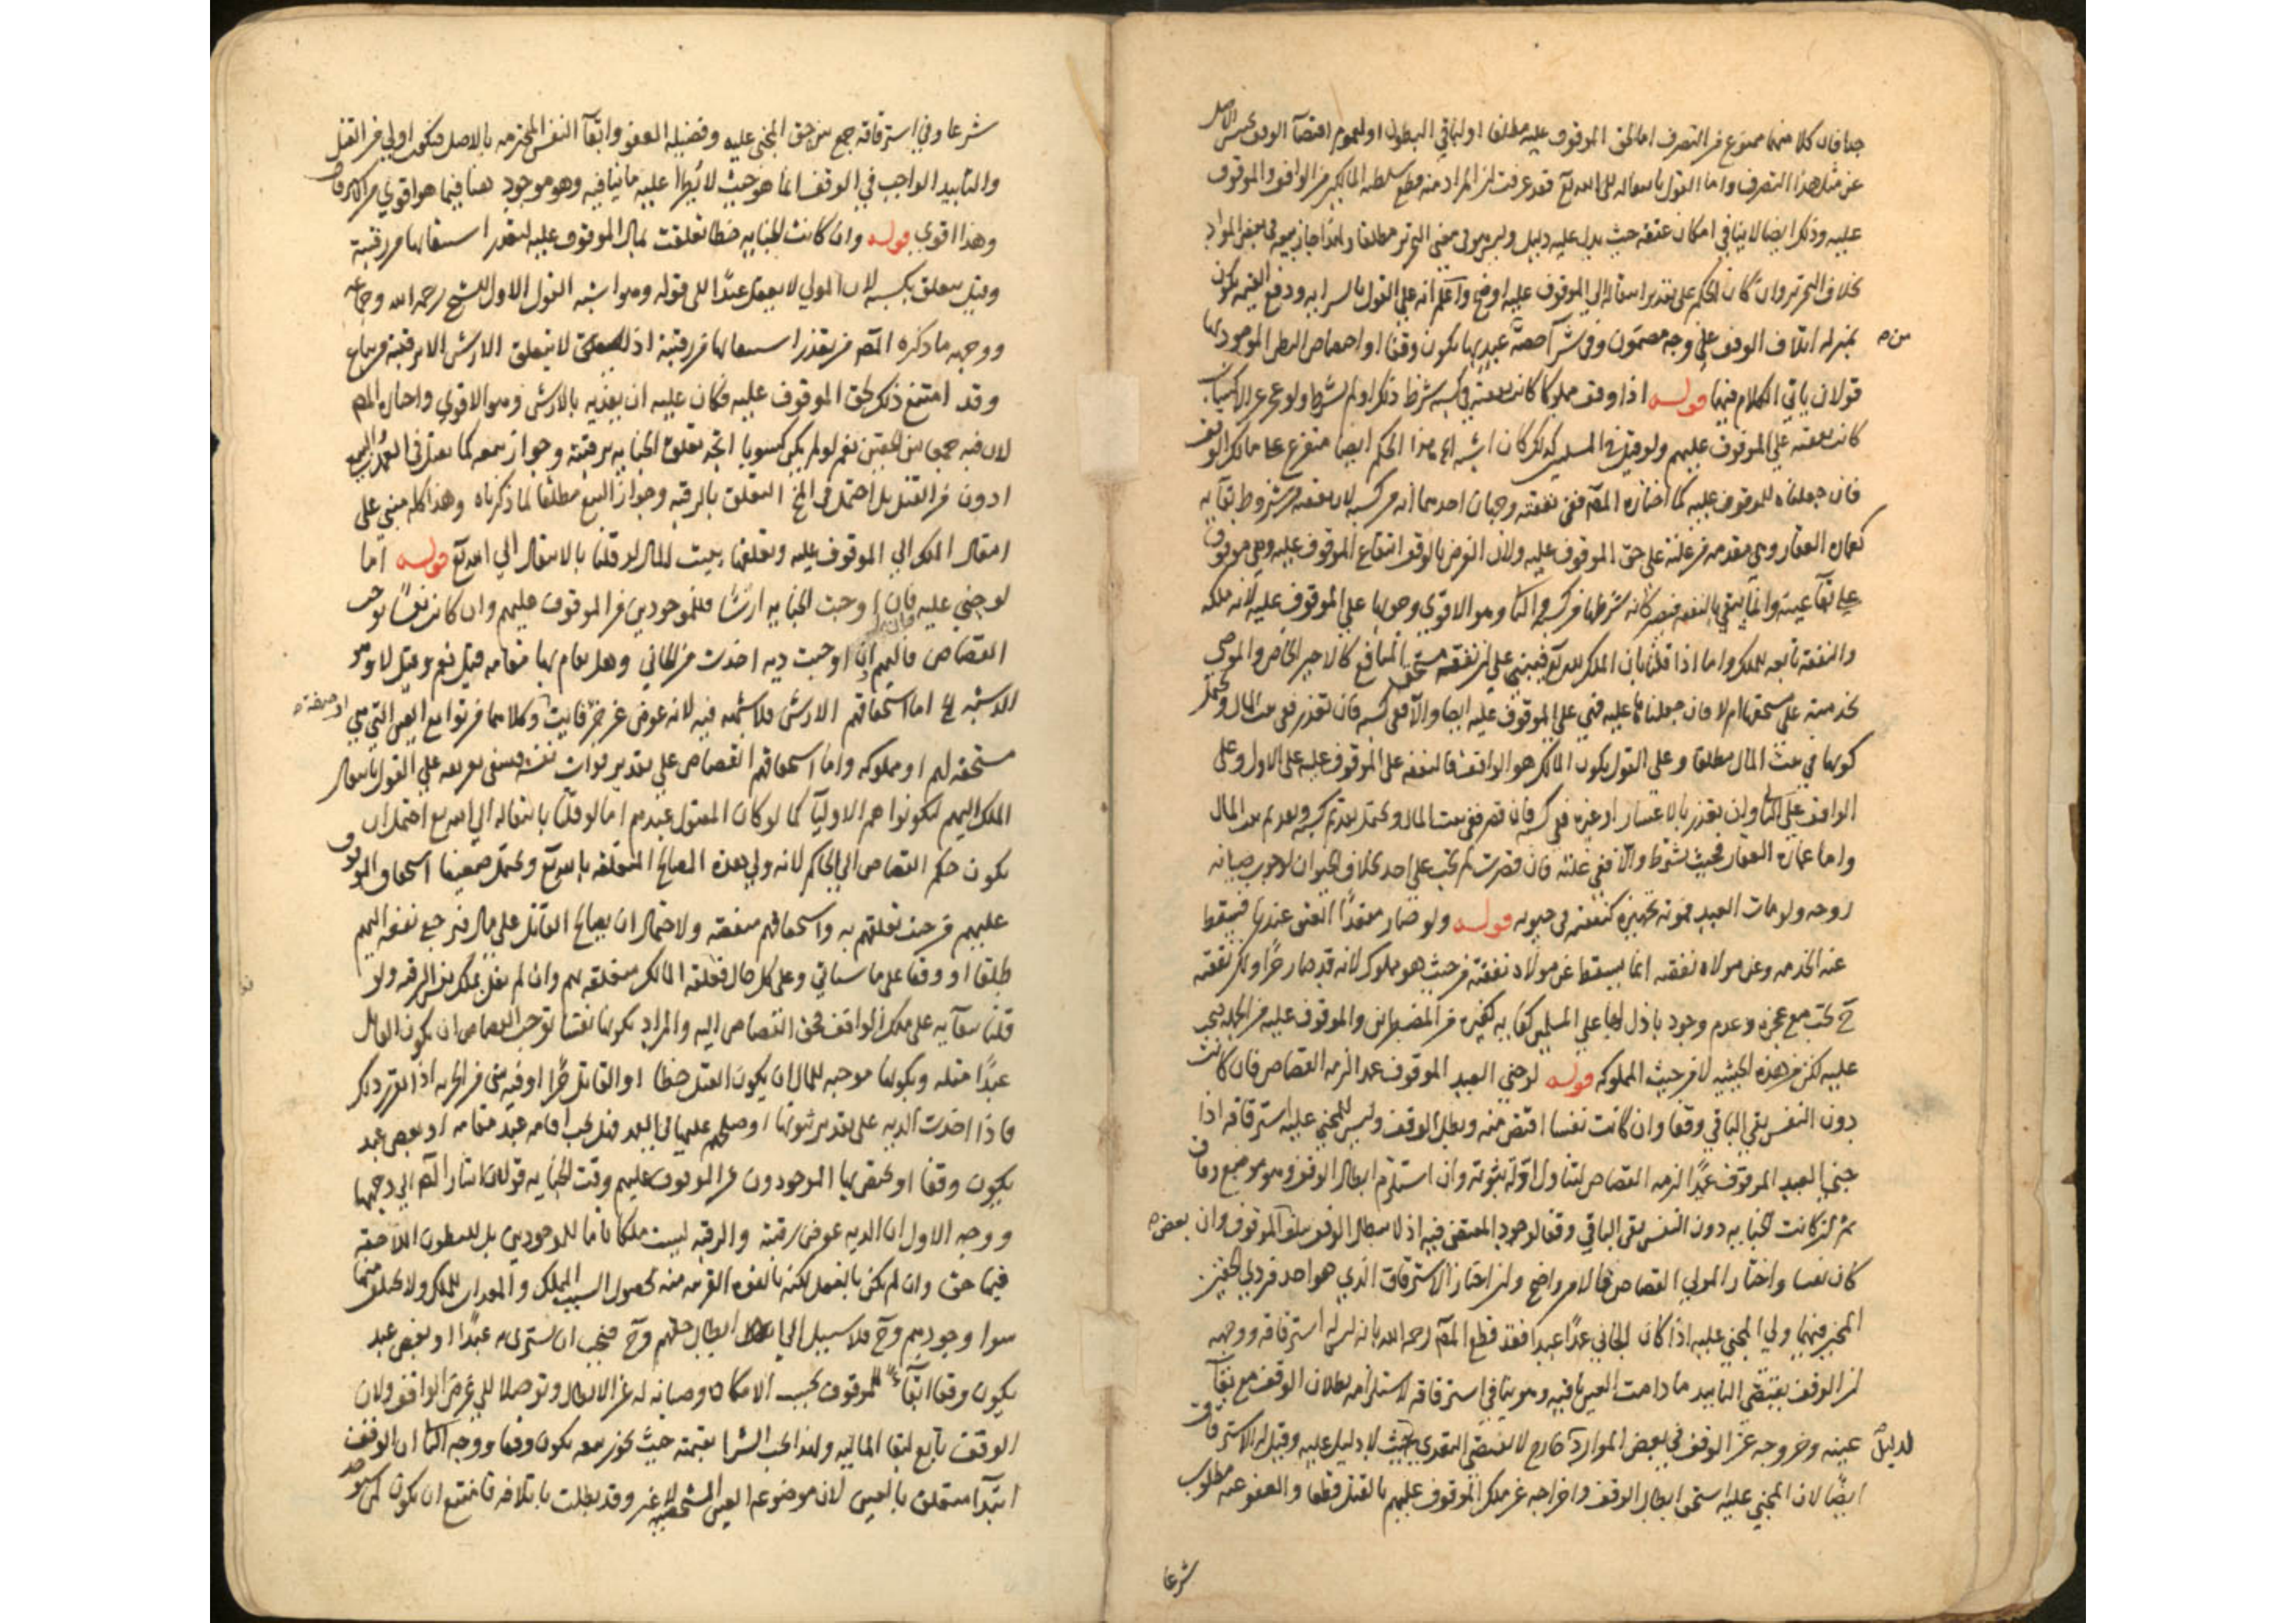 جدا فان كلا منهما ممنوع من التصرف اما لحق الموقوف عليه مطلقا او لباقي البطون او لعموم اقتضآ الوقف تحبيس الاصل
عن مثل هذا التصرف واما القول بانتقاله الى الله تع فقد عرفت ان المراد منه قطع سلطنة المالك من الواقف والموقوف
عليه وذلك ايضا لا ينافي امكان عتقه حيث يدل عليه دليل وليس هو في معنى التحرير مطلقا ولهذا جاز بيعه في بعض الموارد
بخلاف التحرير وان كان الحكم على تقدير انتقاله الى الموقوف عليه اوضح واعلم انه على القول بالسرايه ودفع القيمه يكون
بمنزله اتلاف الوقف على وجه مضمون وفي شرآ حصة عبد بها يكون وقفا او اختصاص البطن الموجود بها
قولان ياتي الكلام فيهما قوله اذا وقف مملوكا كانت نفقته في كسبه شرط ذلك او لم يشترط ولو عجز عن الاكتساب
كانت نفقته على الموقوف عليهم ولو قيل في المسلمين كذلك كان اشبه هذا الحكم ايضا متفرع على مالك الوقف
فان جعلناه للموقوف عليه كما اختاره المصّ ففي نفقته وجهان احدهما انه من كسبه لان نفقته من شروط بقآيه
كعماره العقار وهي مقدمه من غلته على حق الموقوف عليه ولان الغرض بالوقف انتفاع الموقوف عليه وهي موقوف
على بقآ عينه وانما يبقى بالنفقه فيصر كانه شرطها من كسبه والثاني وهو الاقوى وجوبها على الموقوف عليه لانه ملكه
والنفقه تابعه للملك واما اذا قلنا بان الملك لله تع فيبنى على ان نفقة مستحق المنافع كالاجير الخاص والموصى
بخدمته على مستحقها ام لا فان جعلناها عليه فهي على الموقوف عليه ايضا والآ ففي كسبه فان تعذر ففي بيت المال ويحتمل
كونها في بيت المال مطلقا وعلى القول بكون المالك هو الواقف فالنفقه على الموقوف عليه على الاول وعلى
الواقف على الثاني وان تعذر بالاعسار او غيره ففي كسبه فان قصر ففي بيت المال ويحتمل تقديم كسبه وتقديم بيت المال
واما عماره العقار فحيث يشترط والآ ففي غلته فان قصرت لم يجب على احد بخلاف الحيوان لوجوب صيانه
روحه ولو مات العبد فمونه تجهيزه كنفقته في حيوته قوله ولو صار مقعدا انعتق عندنا فيسقط
عنه الخدمه وعن مولاه نفقته انما يسقط عن مولاه نفقته من حيث هو مملوك لانه قد صار حرا ولكن نفقته
ح تجب مع عجزه وعدم وجود باذل لها على المسلمين كفايه كغيره من المضطرين والموقوف عليه من الجمله فيجب
عليه لكن من هذه الحيثيه لا من حيث المملوكيه قوله لو جنى العبد الموقوف عمدا لزمه القصاص فان كانت
دون النفس بقي الباقي وقفا وان كانت نفسا اقتص منه وبطل الوقف وليس للمجني عليه استرقاقه اذا
جنى العبد الموقوف عمدا لزمه القصاص لتناول ادلة ثبوته وان استلزم ابطال الوقف وهو موضع وفاق
ثم ان كانت الجنايه دون النفس بقي الباقي وقفا لوجود المقتضى فيه اذ لا يبطل الوقف بتلف بعض الموقوف وان
كان نفسا واختار الولي القصاص فالامر واضح وان اختار الاسترقاق الذي هو احد فردي التخيير
المخير فيهما ولي المجني عليه اذا كان الجاني عمدا عبدا فقد قطع المصّ رحمه الله بانه ليس له استرقاقه ووجهه
ان الوقف يقتضى التابيد ما دامت العين باقيه وهو ينافي استرقاقه لاستلزامه بطلان الوقف مع بقآ
عينه وخروجه عن الوقف في بعض الموارد لدليل خارج لا يقتضى التعدي بحيث لا دليل عليه وقيل له الاسترقاق
ايضا لان المجني عليه استحق ابطال الوقف واخراجه عن ملك الموقوف عليهم بالقتل قطعا والعفو عنه مطلوب
شرعا
شرعا وفي استرقاقه جمع بين حق المجني عليه وفضيله العفو وابقآ النفس المحترمه بالاصل فيكون اولى من القتل
والتابيد الواجب في الوقف انما هو حيث لا يطرا عليه ما ينافيه وهو موجود هنا فيما هو اقوى من الاسترقاق
وهذا اقوى قوله وان كانت الجنايه خطا تعلقت بمال الموقوف عليه لتعذر استيفائها من رقبته
وقيل يتعلق بكسبه لان المولى لا يعقل عبدا الى قوله وهو اشبه القول الاول للشيخ رحمه الله وجماعه
ووجهه ما ذكره المصّ من تعذر استيفائها من رقبته اذ لا يتعلق الارش الا برقبة من يباع
وقد امتنع ذلك لحق الموقوف عليه فكان عليه ان يفديه بالارش وهو الاقوى واختاره المصّ
لان فيه جمعا بين الحقين نعم لو لم يكن كسوبا اتجه تعلق الجنايه برقبته وجواز بيعه كما يقتل في العمد والبيع
ادون من القتل بل احتمل في التعلق بالرقبه وجواز البيع مطلقا لما ذكرناه وهذا كله مبني على
انتقال الملك الى الموقوف عليه وتعلقها ببيت المال لو قلنا بالانتقال الى الله تع قوله اما
لو جني عليه فان اوجبت الجنايه ارشا فللموجودين من الموقوف عليهم وان كانت نفسا توجب
القصاص فاليهم وان اوجبت ديه اخذت من الجاني وهل يقام بها مقامه قيل نعم وقيل لا وهو
الاشبه اما استحقاقهم الارش فلا شبهه فيه لانه عوض عن جزء فايت او صفة وكلاهما من توابع العين التي هي
مستحقه لهم او مملوكه واما استحقاقهم القصاص على تقدير فوات نفسه فيبنى تفريعه على القول بانتقال
الملك اليهم ليكونوا هم الاوليآ كما لو كان المقتول عبدهم اما لو قلنا بانتقاله الى الله تع احتمل ان
يكون حكم القصاص الى الحاكم لانه ولي هذه المصالح المتعلقه بالله تع ويحتمل ضعيفا استحقاق الموقوف
عليهم من حيث تعلقهم به واستحقاقهم منفعته ولاحتمال ان يصالح القاتل على مال فيرجع نفعه اليهم
طلقا او وقفا على ما سياتي وعلى كل حال فعلقة المالك متعلقه بهم وان لم نقل بملك نفس الرقبه ولو
قلنا ببقآيه على ملك الواقف فحق القصاص اليه والمراد بكونها نفسا توجب القصاص ان يكون القاتل
عبدا مثله وبكونها موجبه للمال ان يكون القتل خطا او القاتل حرا او فيه شي من الحريه اذا تقرر ذلك
فاذا اخذت الديه على تقدير ثبوتها او صلحهم عليها في العمد فهل يجب اقامه عبد مقامه او بعض عبد
يكون وقفا او يختص بها الموجودون من الموقوف عليهم وقت الجنايه قولان اشار المصّ الى وجهيهما
ووجه الاول ان الديه عوض رقبته والرقبه ليست ملكا تاما للموجودين بل للبطون اللاحقه
فيها حق وان لم يكن بالفعل لكنه بالقوه القريبه منه لحصول السبب المملك والمعدات للملك ولا يتخلف منها
سوا وجودهم وح فلا سبيل الى ابطال حقهم وح فيجب ان يشترى به عبدا او بعض عبد
يكون وقفا ابقآءً للموقوف بحسب الامكان وصيانه له عن الابطال وتوصلا الى غرض الواقف ولان
الوقف تابع لبقا الماليه ولهذا يجب الشرا بقيمته حيث يجوز بيعه يكون وقفا ووجه الثاني ان الوقف
ابتدآ متعلق بالعين لان موضوعه العين الشخصيه لا غير وقد بطلت باتلافه فامتنع ان يكون